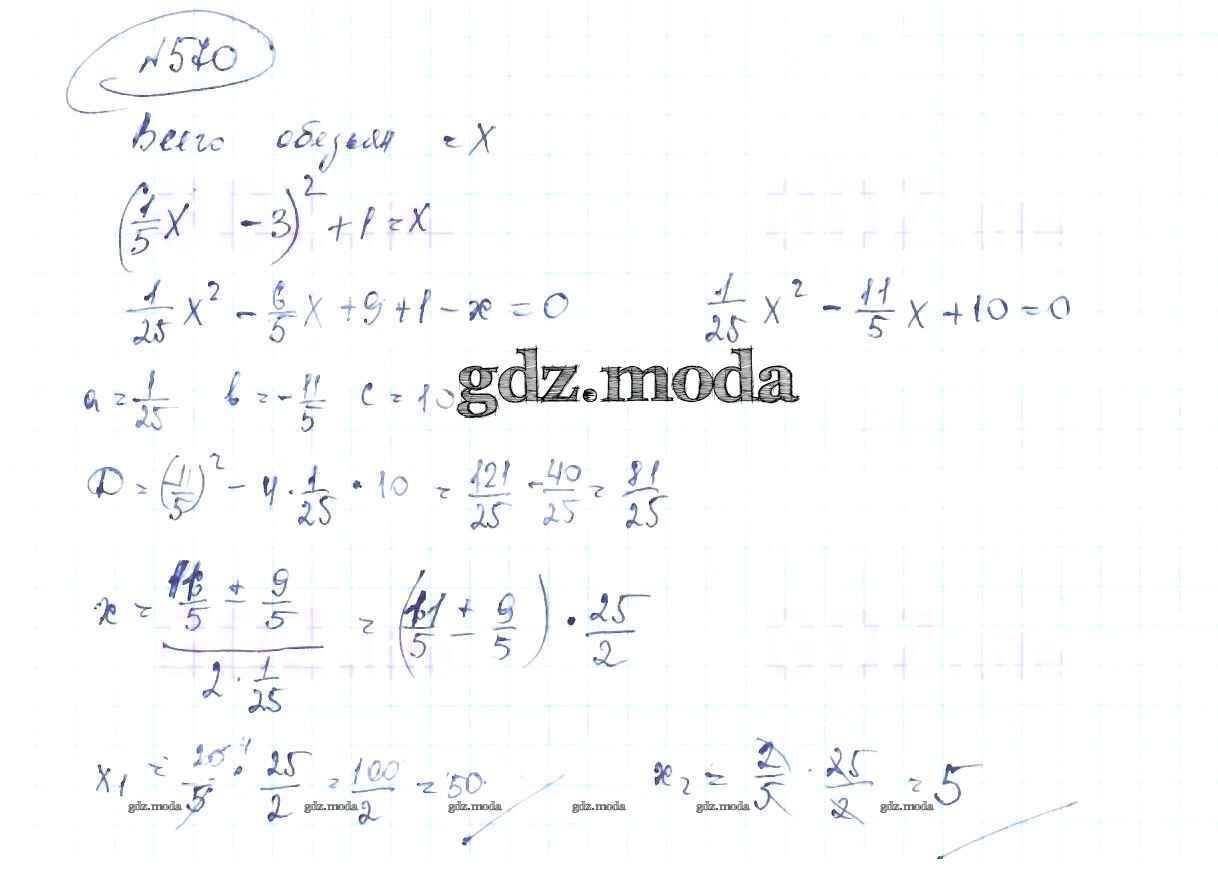 №570
Всего обезьян = X
(1/5 X - 3)² + 1 = X
1/25 X² - 6/5 X + 9 + 1 - x = 0    1/25 X² - 11/5 X + 10 = 0
a = 1/25  b = - 11/5  c = 10
gdz.moda
D = (11/5)² - 4 · 1/25 · 10 = 121/25 - 40/25 = 81/25
x = (11/5 ± 9/5) / (2 · 1/25) = (11/5 ± 9/5) · 25/2
x₁ = 20/5 · 25/2 = 100/2 = 50    x₂ = 2/5 · 25/2 = 5
gdz.moda gdz.moda gdz.moda gdz.moda gdz.moda gdz.moda